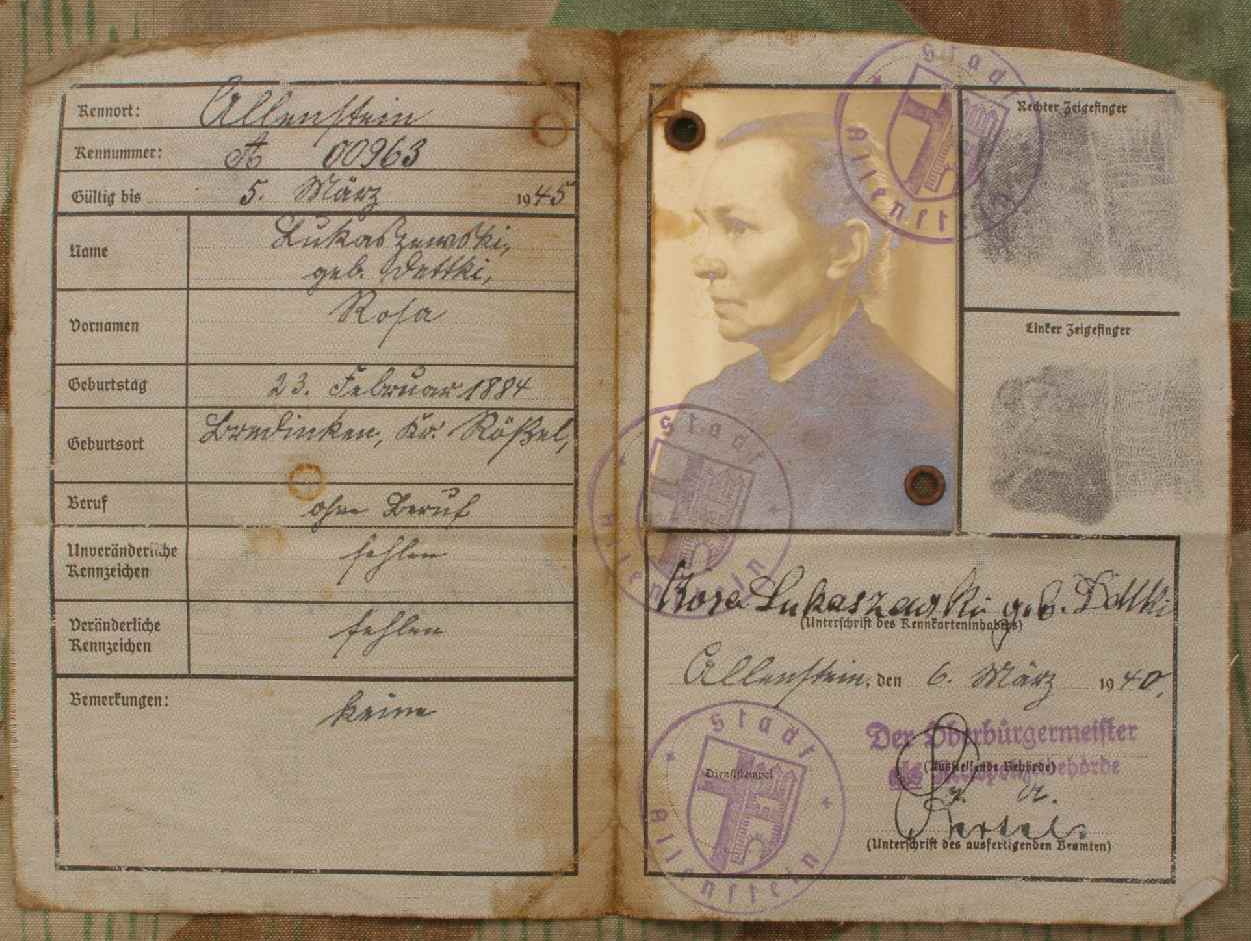 Kennort: Allenstein
Kennummer: A 00963
Gültig bis 5. März 1945
Name Lukaszewski,
geb. Dettki,
Vornamen Rosa
Geburtstag 23. Februar 1884
Geburtsort Bredinken, Kr. Rößel,
Beruf ohne Beruf
Unveränderliche
Kennzeichen fehlen
Veränderliche
Kennzeichen fehlen
Bemerkungen: keine
Stadt
Allenstein
Rechter Zeigefinger
Linker Zeigefinger
Stadt
Allenstein
Rosa Lukaszewski geb. Dettki
(Unterschrift des Kennkarteninhabers)
Allenstein, den 6. März 1940.
Stadt
Allenstein
Dienststempel
Der Oberbürgermeister
(Ausstellende Behörde)
als behörde
(Unterschrift des ausfertigenden Beamten)